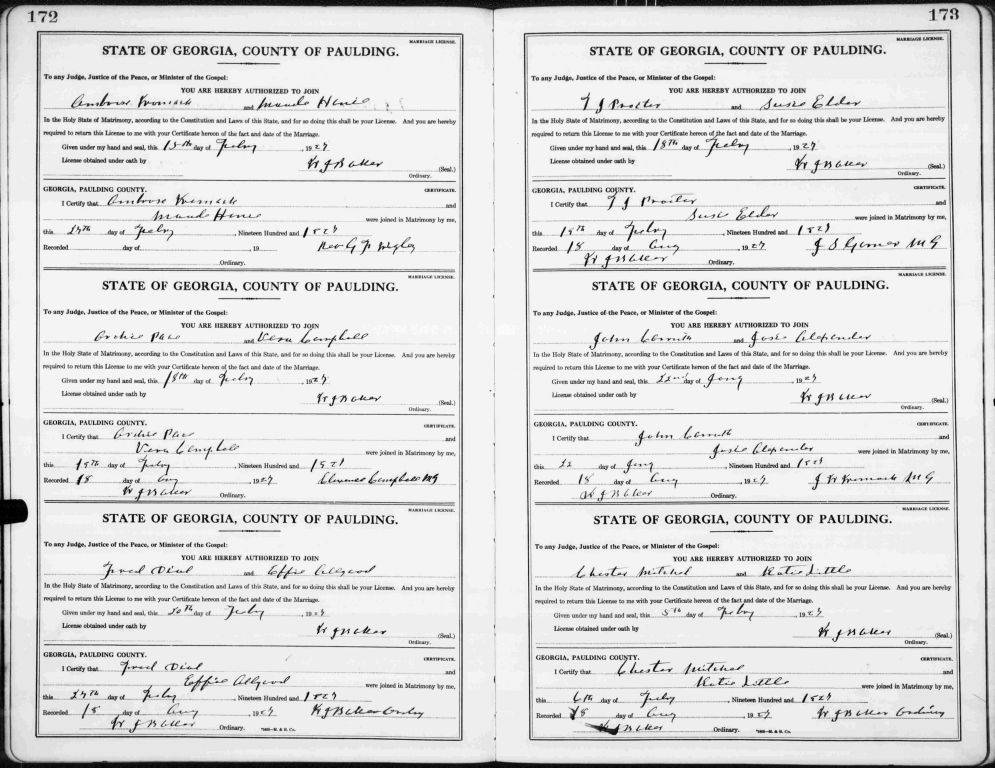 172
MARRIAGE LICENSE.
STATE OF GEORGIA, COUNTY OF PAULDING.
To any Judge, Justice of the Peace, or Minister of the Gospel:
YOU ARE HEREBY AUTHORIZED TO JOIN
Ambrose Womack and Maude
In the Holy State of Matrimony, according to the Constitution and Laws of this State, and for so doing this shall be your License. And you are hereby
required to return this License to me with your Certificate hereon of the fact and date of the Marriage.
Given under my hand and seal, this 15th day of Feby, 1927
License obtained under oath by W J Baker (Seal.)
Ordinary.
GEORGIA, PAULDING COUNTY. CERTIFICATE.
I Certify that Ambrose Womack and
Maude were joined in Matrimony by me,
this day of Feby, Nineteen Hundred and 1927
Recorded day of , 19 Rev G
Ordinary.
MARRIAGE LICENSE.
STATE OF GEORGIA, COUNTY OF PAULDING.
To any Judge, Justice of the Peace, or Minister of the Gospel:
YOU ARE HEREBY AUTHORIZED TO JOIN
Archie Pace and Vera Campbell
In the Holy State of Matrimony, according to the Constitution and Laws of this State, and for so doing this shall be your License. And you are hereby
required to return this License to me with your Certificate hereon of the fact and date of the Marriage.
Given under my hand and seal, this 18th day of Feby, 1927
License obtained under oath by W J Baker (Seal.)
Ordinary.
GEORGIA, PAULDING COUNTY. CERTIFICATE.
I Certify that Archie Pace and
Vera Campbell were joined in Matrimony by me,
this 19th day of Feby, Nineteen Hundred and 1927
Recorded 18 day of Aug, 1927 Campbell MG
W J Baker Ordinary.
MARRIAGE LICENSE.
STATE OF GEORGIA, COUNTY OF PAULDING.
To any Judge, Justice of the Peace, or Minister of the Gospel:
YOU ARE HEREBY AUTHORIZED TO JOIN
Fred Dial and Effie Allgood
In the Holy State of Matrimony, according to the Constitution and Laws of this State, and for so doing this shall be your License. And you are hereby
required to return this License to me with your Certificate hereon of the fact and date of the Marriage.
Given under my hand and seal, this 20th day of Feby, 1927
License obtained under oath by W J Baker (Seal.)
Ordinary.
GEORGIA, PAULDING COUNTY. CERTIFICATE.
I Certify that Fred Dial and
Effie Allgood were joined in Matrimony by me,
this day of Feby, Nineteen Hundred and 1927
Recorded 18 day of Aug, 1927 W J Baker Ordinary
W J Baker Ordinary.
173
MARRIAGE LICENSE.
STATE OF GEORGIA, COUNTY OF PAULDING.
To any Judge, Justice of the Peace, or Minister of the Gospel:
YOU ARE HEREBY AUTHORIZED TO JOIN
T J Procter and Susie Elder
In the Holy State of Matrimony, according to the Constitution and Laws of this State, and for so doing this shall be your License. And you are hereby
required to return this License to me with your Certificate hereon of the fact and date of the Marriage.
Given under my hand and seal, this 18th day of Feby, 1927
License obtained under oath by W J Baker (Seal.)
Ordinary.
GEORGIA, PAULDING COUNTY. CERTIFICATE.
I Certify that T J Procter and
Susie Elder were joined in Matrimony by me,
this 19th day of Feby, Nineteen Hundred and 1927
Recorded 18 day of Aug, 1927 J S Garner M G
W J Baker Ordinary.
MARRIAGE LICENSE.
STATE OF GEORGIA, COUNTY OF PAULDING.
To any Judge, Justice of the Peace, or Minister of the Gospel:
YOU ARE HEREBY AUTHORIZED TO JOIN
John and Josie Alexander
In the Holy State of Matrimony, according to the Constitution and Laws of this State, and for so doing this shall be your License. And you are hereby
required to return this License to me with your Certificate hereon of the fact and date of the Marriage.
Given under my hand and seal, this 22nd day of Jany, 1927
License obtained under oath by W J Baker (Seal.)
Ordinary.
GEORGIA, PAULDING COUNTY. CERTIFICATE.
I Certify that John and
Josie Alexander were joined in Matrimony by me,
this 22 day of Jany, Nineteen Hundred and 1927
Recorded 18 day of Aug, 1927 J W Womack M G
W J Baker Ordinary.
MARRIAGE LICENSE.
STATE OF GEORGIA, COUNTY OF PAULDING.
To any Judge, Justice of the Peace, or Minister of the Gospel:
YOU ARE HEREBY AUTHORIZED TO JOIN
Chester Mitchel and Katie Little
In the Holy State of Matrimony, according to the Constitution and Laws of this State, and for so doing this shall be your License. And you are hereby
required to return this License to me with your Certificate hereon of the fact and date of the Marriage.
Given under my hand and seal, this 5th day of Feby, 1927
License obtained under oath by W J Baker (Seal.)
Ordinary.
GEORGIA, PAULDING COUNTY. CERTIFICATE.
I Certify that Chester Mitchel and
Katie Little were joined in Matrimony by me,
this 6th day of Feby, Nineteen Hundred and 1927
Recorded 18 day of Aug, 1927 W J Baker Ordinary
W J Baker Ordinary.